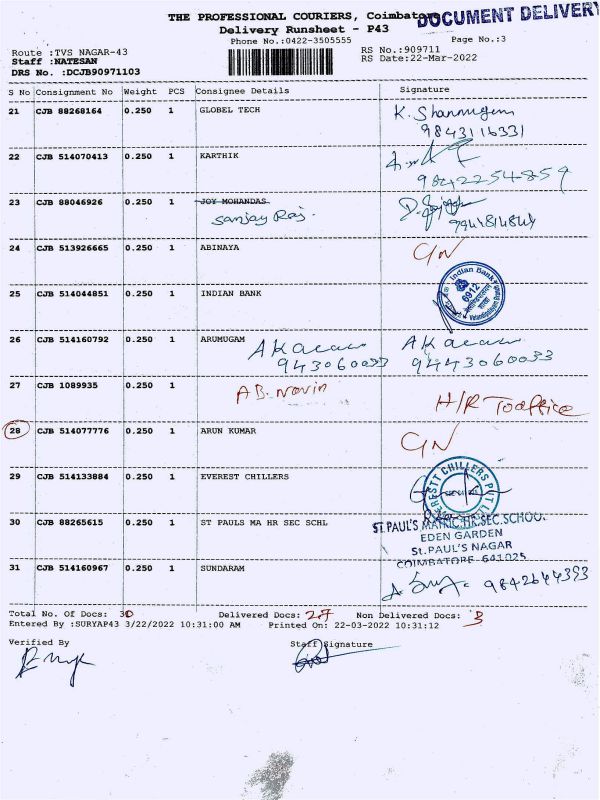 THE PROFESSIONAL COURIERS, Coimbatore
DOCUMENT DELIVERY
Delivery Runsheet - P43
Phone No.:0422-3505555
Page No.:3
Route :TVS NAGAR-43
RS No.:909711
Staff :NATESAN
RS Date:22-Mar-2022
DRS No. :DCJB90971103
S No Consignment No Weight PCS Consignee Details Signature
21 CJB 88268164 0.250 1 GLOBEL TECH K. Shanmugam
9843116331
22 CJB 514070413 0.250 1 KARTHIK
9842254859
23 CJB 88046926 0.250 1 JOY MOHANDAS
Sanjay Raj.
24 CJB 513926665 0.250 1 ABINAYA
Indian Bank
6912
25 CJB 514044851 0.250 1 INDIAN BANK
26 CJB 514160792 0.250 1 ARUMUGAM
943060033 9443060033
27 CJB 1089935 0.250 1 AB. Navin
H/R To office
28 CJB 514077776 0.250 1 ARUN KUMAR
29 CJB 514133884 0.250 1 EVEREST CHILLERS
EVERESTT CHILLERS PVT LTD
30 CJB 88265615 0.250 1 ST PAULS MA HR SEC SCHL
ST.PAUL'S MATRIC.HR.SEC.SCHOOL
EDEN GARDEN
St.PAUL'S NAGAR
COIMBATORE-641025
31 CJB 514160967 0.250 1 SUNDARAM
9842644393
Total No. Of Docs: 30 Delivered Docs: 27 Non Delivered Docs: 3
Entered By :SURYAP43 3/22/2022 10:31:00 AM Printed On: 22-03-2022 10:31:12
Verified By Staff Signature